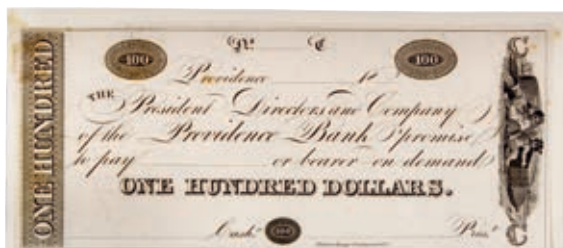 ONE HUNDRED
100 100
Providence
THE President Directors and Company
of the Providence Bank promise
to pay or bearer on demand
ONE HUNDRED DOLLARS.
Cash.r 100 Pres.t
C
C